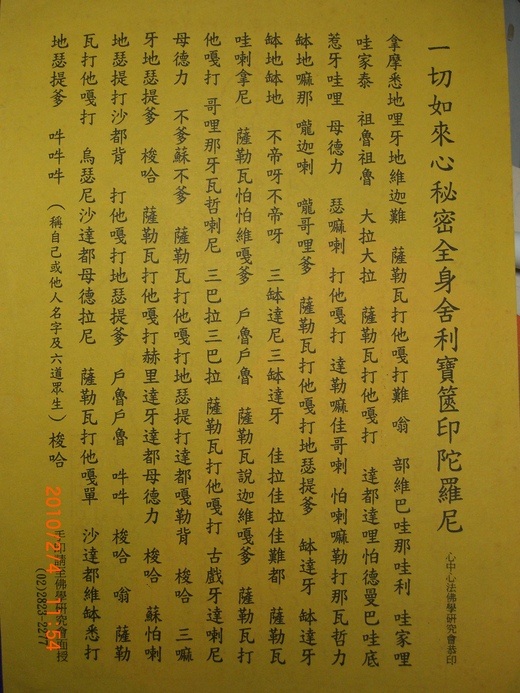 一切如來心秘密全身舍利寶篋印陀羅尼
心中心法佛學研究會恭印
拿摩悉地哩牙地維迦難　薩勒瓦打他嘎打難　嗡　部維巴哇那哇利　哇家哩
哇家泰　祖魯祖魯　大拉大拉　薩勒瓦打他嘎打　達都達哩怕德曼巴哇底
惹牙哇哩　母德力　瑟嘛喇　打他嘎打　達勒嘛佳哥喇　怕喇嘛打那瓦哲力
缽地嘛那　嚨迦喇　嚨哥哩爹　薩勒瓦打他嘎打地瑟提爹　缽達牙　缽達牙
缽地缽地　不帝呀不帝呀　三缽達尼三缽達牙　佳拉佳拉佳難都　薩勒瓦打
哇喇拿尼　薩勒瓦怕怕維嘎爹　戶魯戶魯　薩勒瓦說迦維嘎爹　薩勒瓦打
他嘎打　哥哩那牙瓦哲喇尼　三巴拉三巴拉　薩勒瓦打他嘎打　古戲牙達喇尼
母德力　不爹蘇不爹　薩勒瓦打他嘎打地瑟提打達都嘎勒背　梭哈　三嘛
牙地瑟提爹　梭哈　薩勒瓦打他嘎打赫里達牙達都母德力　梭哈　蘇怕喇
地瑟提打沙都背　打他嘎打地瑟提爹　戶魯戶魯　吽吽　梭哈　嗡　薩勒
瓦打他嘎打　烏瑟尼沙達都母德拉尼　薩勒瓦打他嘎單　沙達都維缽悉打
地瑟提爹　吽吽吽　（稱自己或他人名字及六道眾生）梭哈
手印請至佛學研究會面授
(02)2823-2277
2010/2/4 11:54